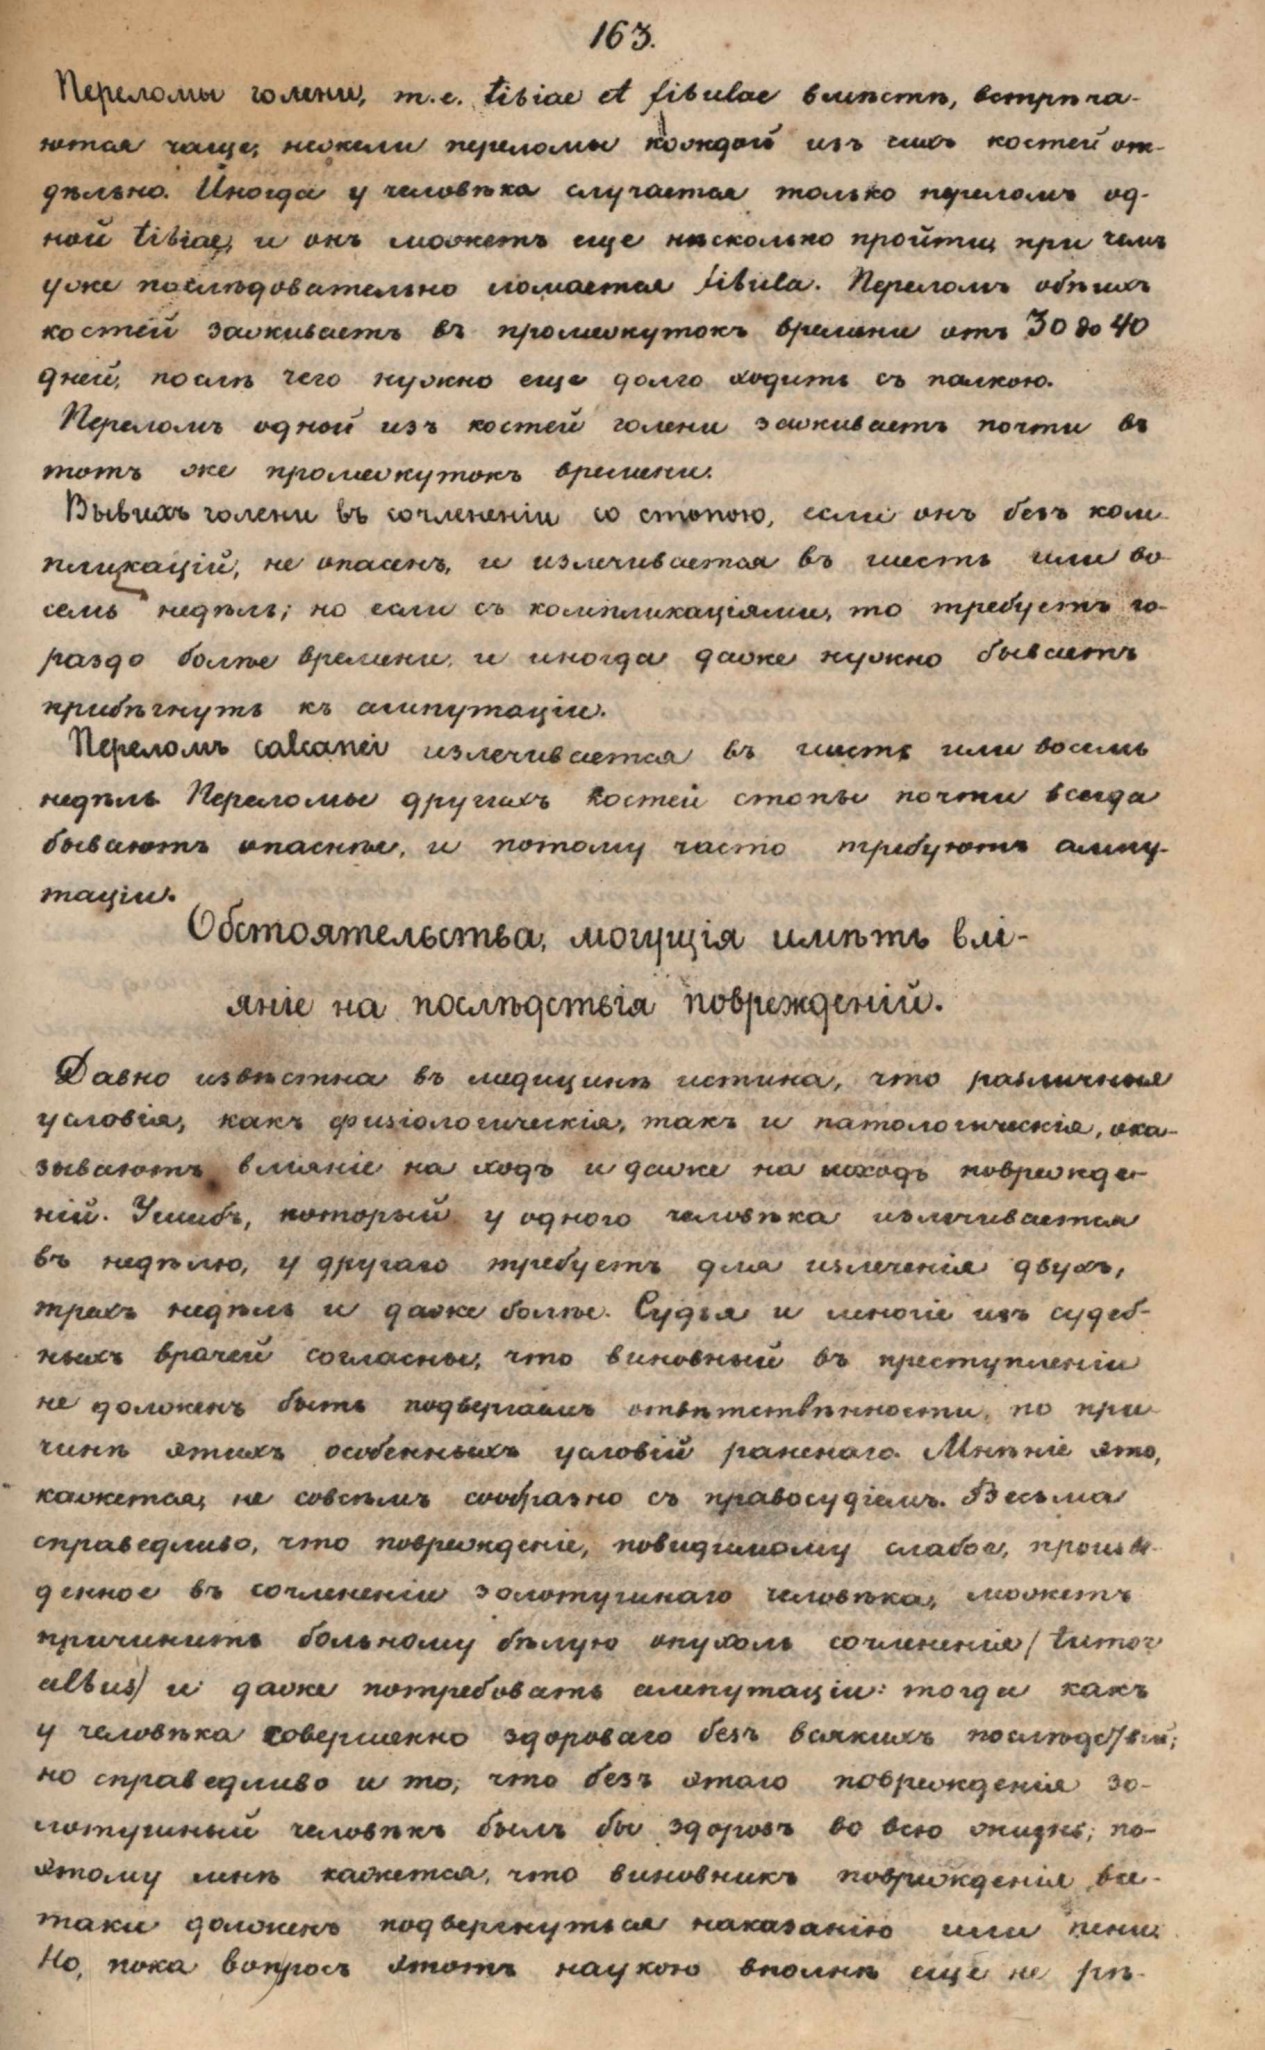 163.
Переломы голени, т.е. tibiae et fibulae вмѣстѣ, встрѣча-
ются чаще, нежели переломы каждой изъ сихъ костей от-
дѣльно. Иногда у человѣка случается только переломъ од-
ной tibiae, и онъ можетъ еще нѣсколько пройти, при чемъ
уже послѣдовательно ломается fibula. Переломъ обѣихъ
костей заживаетъ въ промежутокъ времени отъ 30 до 40
дней, послѣ чего нужно еще долго ходить съ палкою.
Переломъ одной изъ костей голени заживаетъ почти въ
тотъ же промежутокъ времени.
Вывихъ голени въ сочлененіи со стопою, если онъ безъ ком-
пликацій, не опасенъ, и излечивается въ шесть или во-
семь недѣль; но если съ компликаціями, то требуетъ го-
раздо болѣе времени, и иногда даже нужно бываетъ
прибѣгнуть къ ампутаціи.
Переломъ calcanei излечивается въ шесть или восемь
недѣль. Переломы другихъ костей стопы почти всегда
бываютъ опаснѣе, и потому часто требуютъ ампу-
таціи.
Обстоятельства, могущія имѣть влі-
яніе на послѣдствія поврежденій.
Давно извѣстна въ медицинѣ истина, что различныя
условія, какъ физіологическія, такъ и патологическія, ока-
зываютъ вліяніе на ходъ и даже на исходъ поврежде-
ній. Ушибъ, который у одного человѣка излечивается
въ недѣлю, у другаго требуетъ для излеченія двухъ,
трехъ недѣль и даже болѣе. Судья и многіе изъ судеб-
ныхъ врачей согласны, что виновный въ преступленіи
не долженъ быть подвергаемъ отвѣтствѣнности, по при-
чинѣ этихъ особенныхъ условій раненаго. Мнѣніе это,
кажется, не совсѣмъ сообразно съ правосудіемъ. Весьма
справедливо, что поврежденіе, повидимому слабое, произве-
денное въ сочлененіи золотушнаго человѣка, можетъ
причинить больному бѣлую опухоль сочлененія (tumor
albus) и даже потребовать ампутаціи: тогда какъ
у человѣка совершенно здороваго безъ всякихъ послѣдствій;
но справедливо и то, что безъ этаго поврежденія зо-
лотушный человѣкъ былъ бы здоровъ во всю жизнь; по-
этому мнѣ кажется, что виновникъ поврежденія все-
таки долженъ подвергнуться наказанію или пени.
Но, пока вопросъ этотъ наукою вполнѣ еще не рѣ-